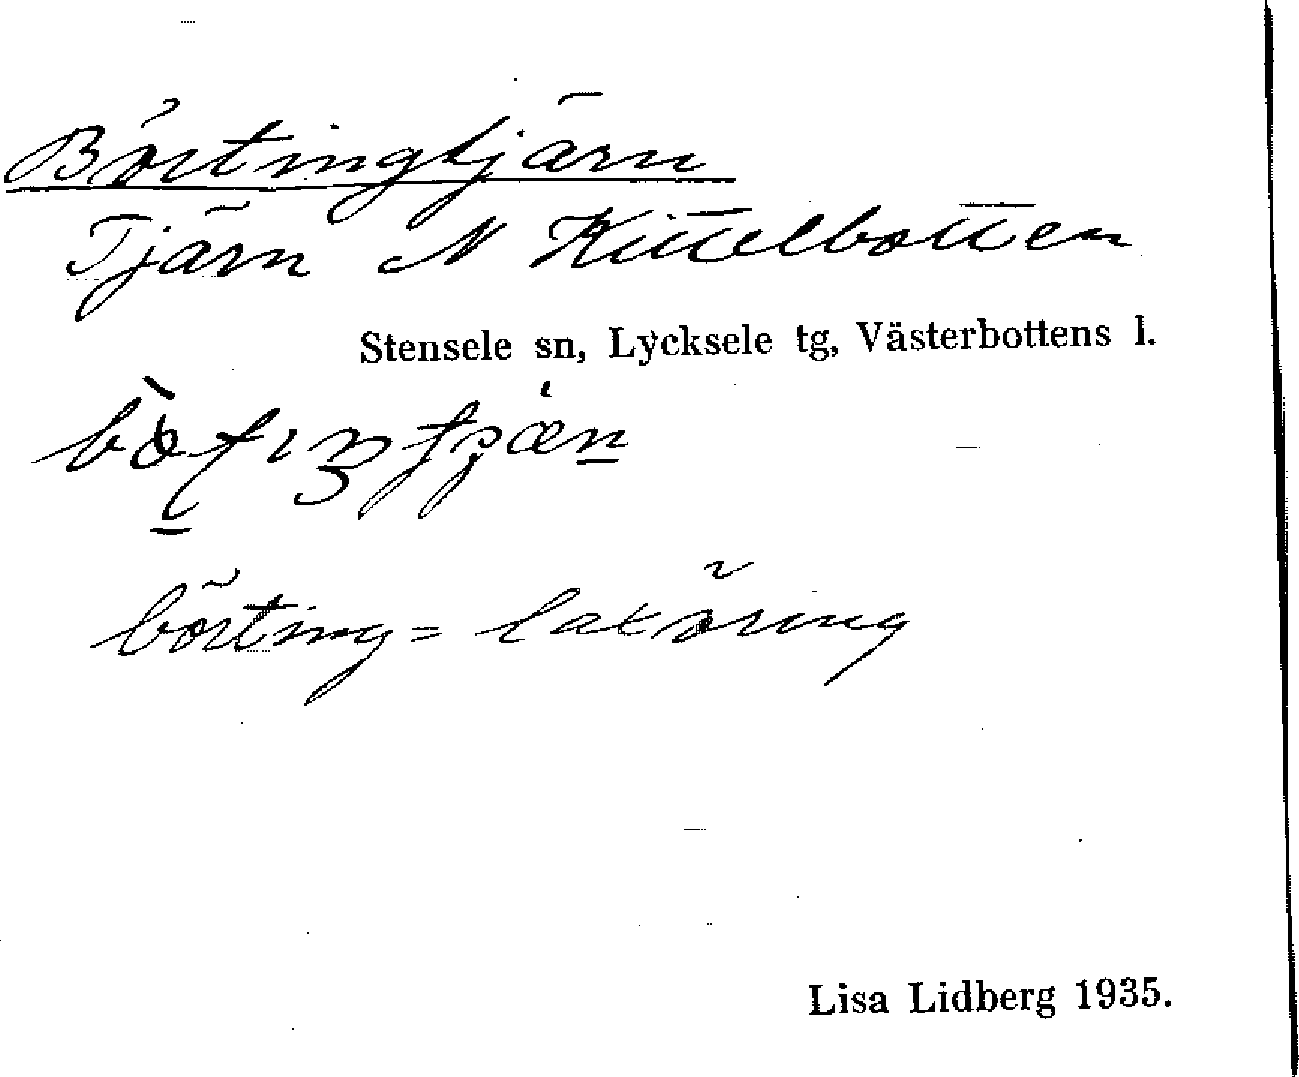 Börtingtjärn
Tjärn N Kittelbotten
Stensele sn, Lycksele tg, Västerbottens l.
börting = laxöring
Lisa Lidberg 1935.